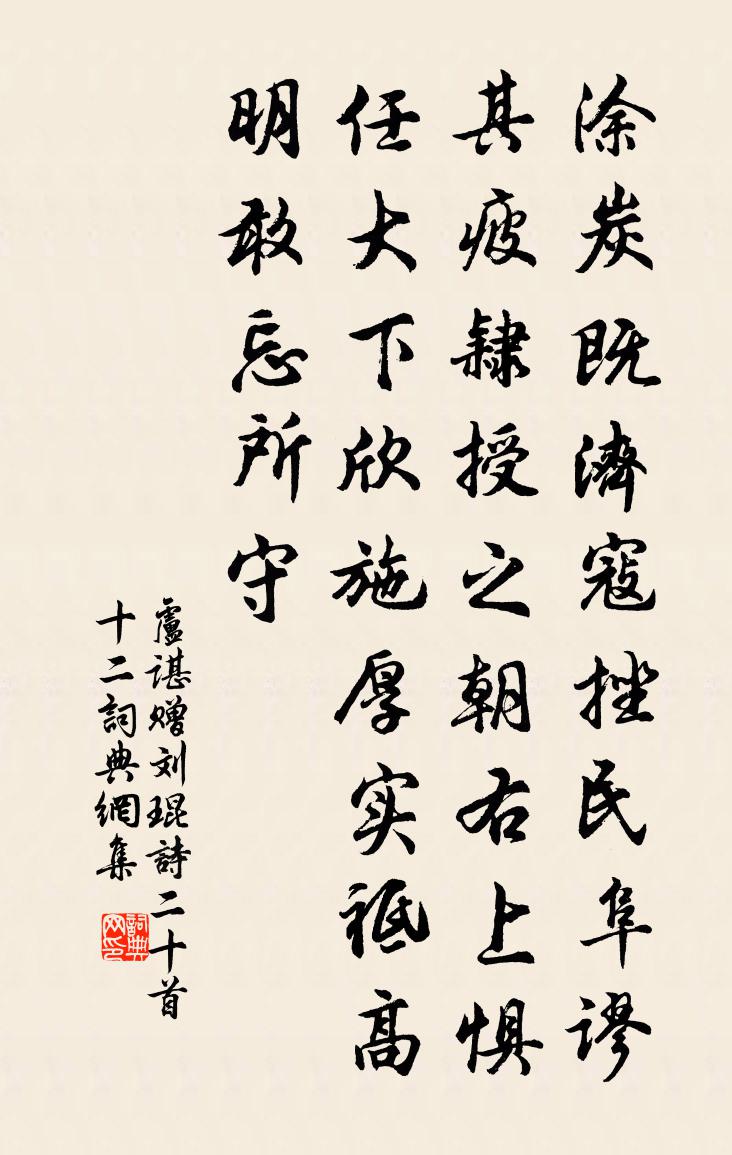 涂炭既濟寇挫民阜谬
其疲隸授之朝右上惧
任大下欣施厚实祗高
明敢忘所守
盧諶赠刘琨詩二十首
十二詞典網集
詞典网印